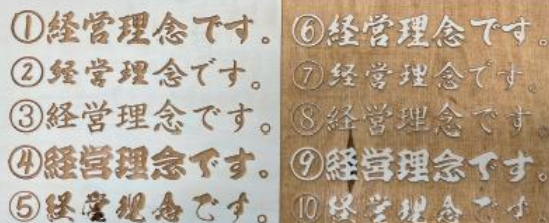 ①経営理念です。
②経営理念です。
③経営理念です。
④経営理念です。
⑤経営理念です。
⑥経営理念です。
⑦経営理念です。
⑧経営理念です
⑨経営理念です。
⑩経営理念です